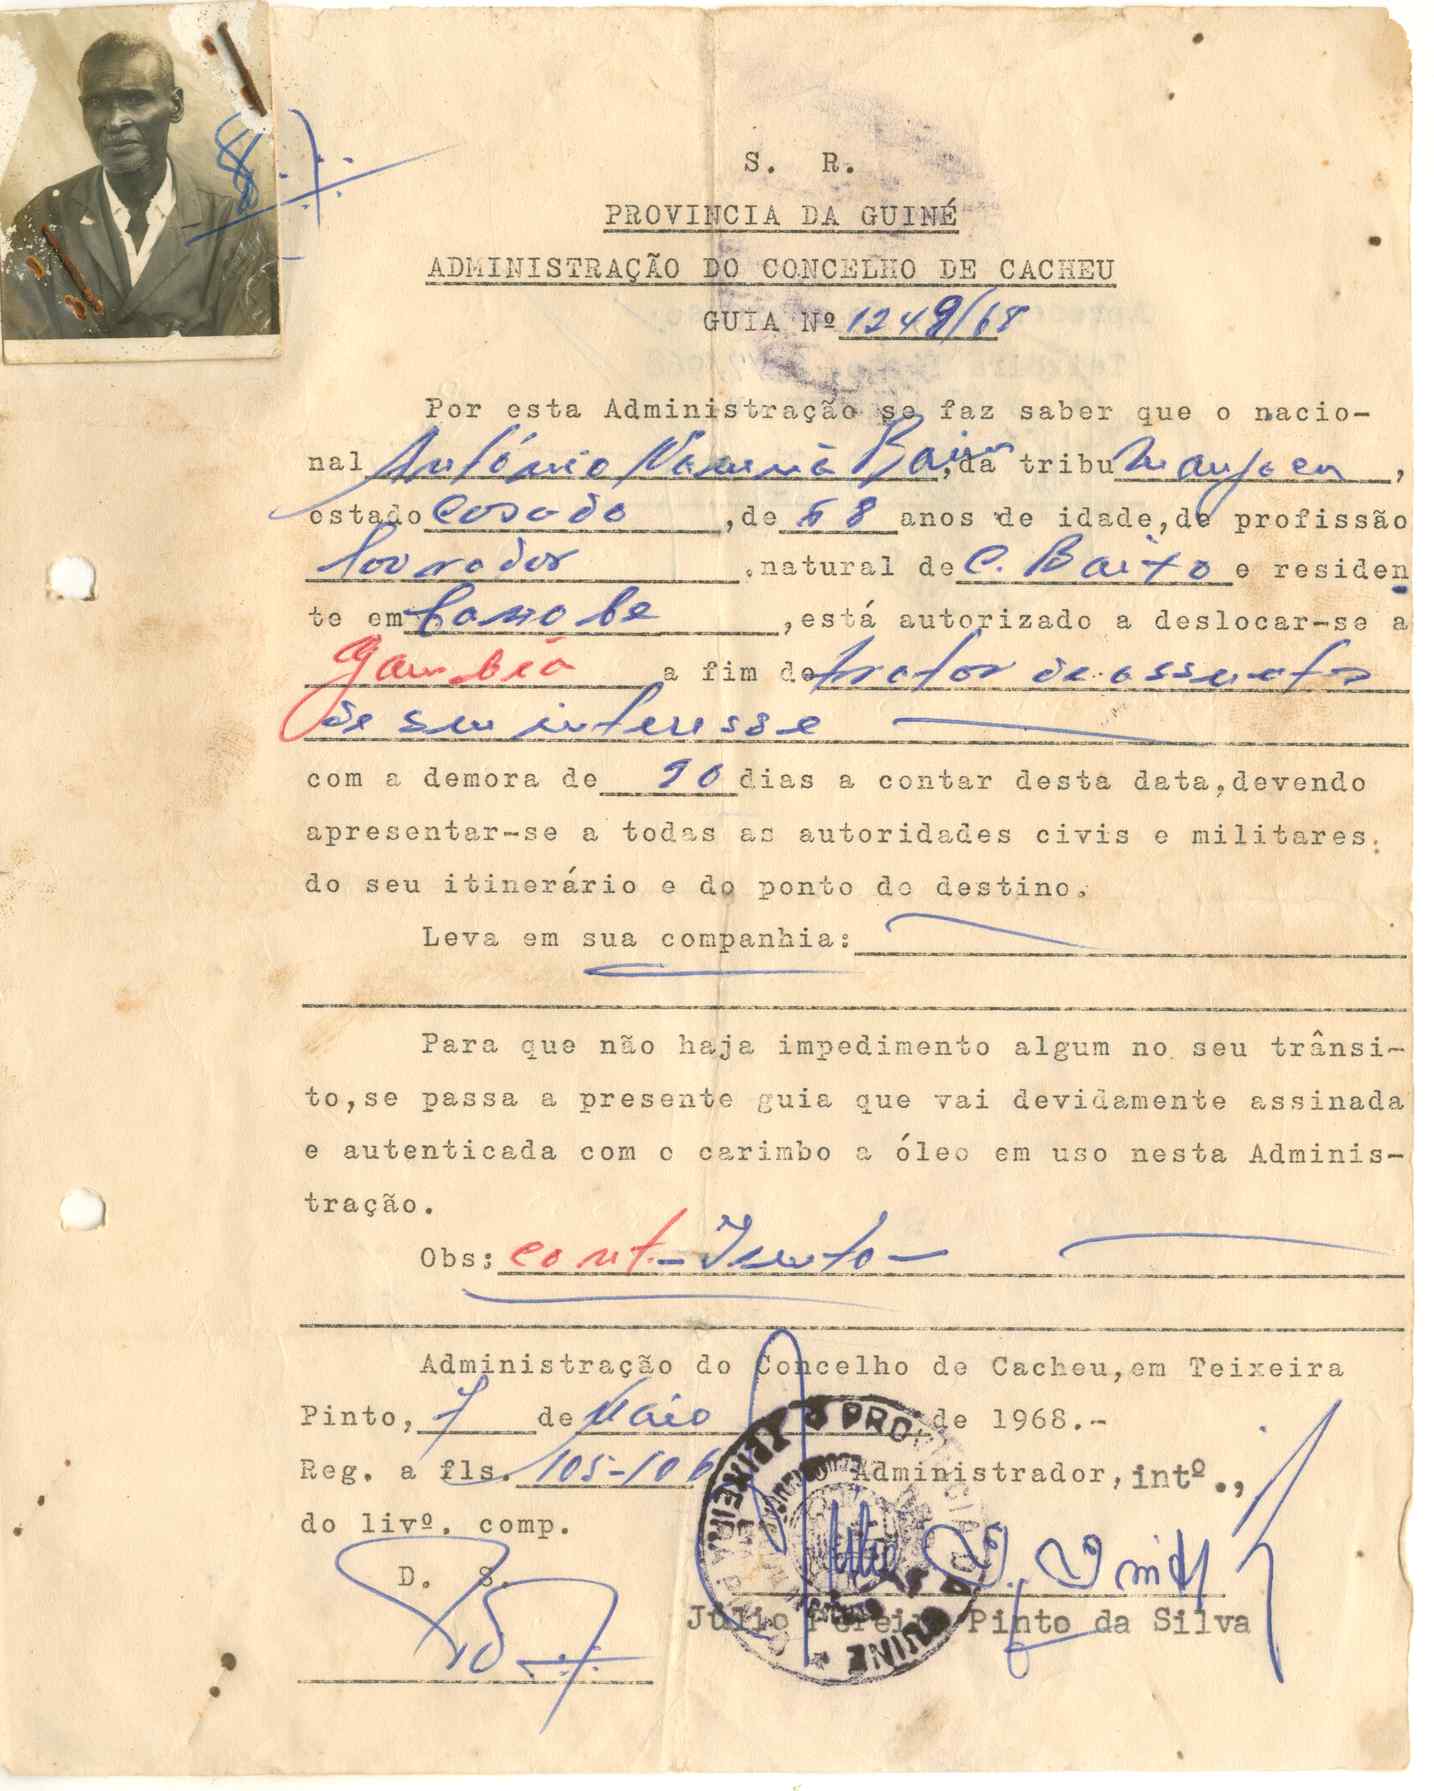 S. R.
PROVINCIA DA GUINÉ
ADMINISTRAÇÃO DO CONCELHO DE CACHEU
GUIA Nº 1249/68
Por esta Administração se faz saber que o nacio-
nal António ,da tribu Manjaca ,
estado Casado ,de 68 anos de idade,de profissão
lavrador ,natural de C. Baixo e residen
te em Canobe ,está autorizado a deslocar-se a
Gambia a fim de tratar de assunto
de seu interesse
com a demora de 90 dias a contar desta data,devendo
apresentar-se a todas as autoridades civis e militares.
do seu itinerário e do ponto de destino.
Leva em sua companhia:
Para que não haja impedimento algum no seu trânsi-
to,se passa a presente guia que vai devidamente assinada
e autenticada com o carimbo a óleo em uso nesta Adminis-
tração.
Obs: cont.-Isento-
Administração do Concelho de Cacheu,em Teixeira
Pinto, 7 de Maio de 1968.-
Reg. a fls. 105-106 Administrador, intº.,
do livº. comp.
D. S.
Júlio Pereira Pinto da Silva